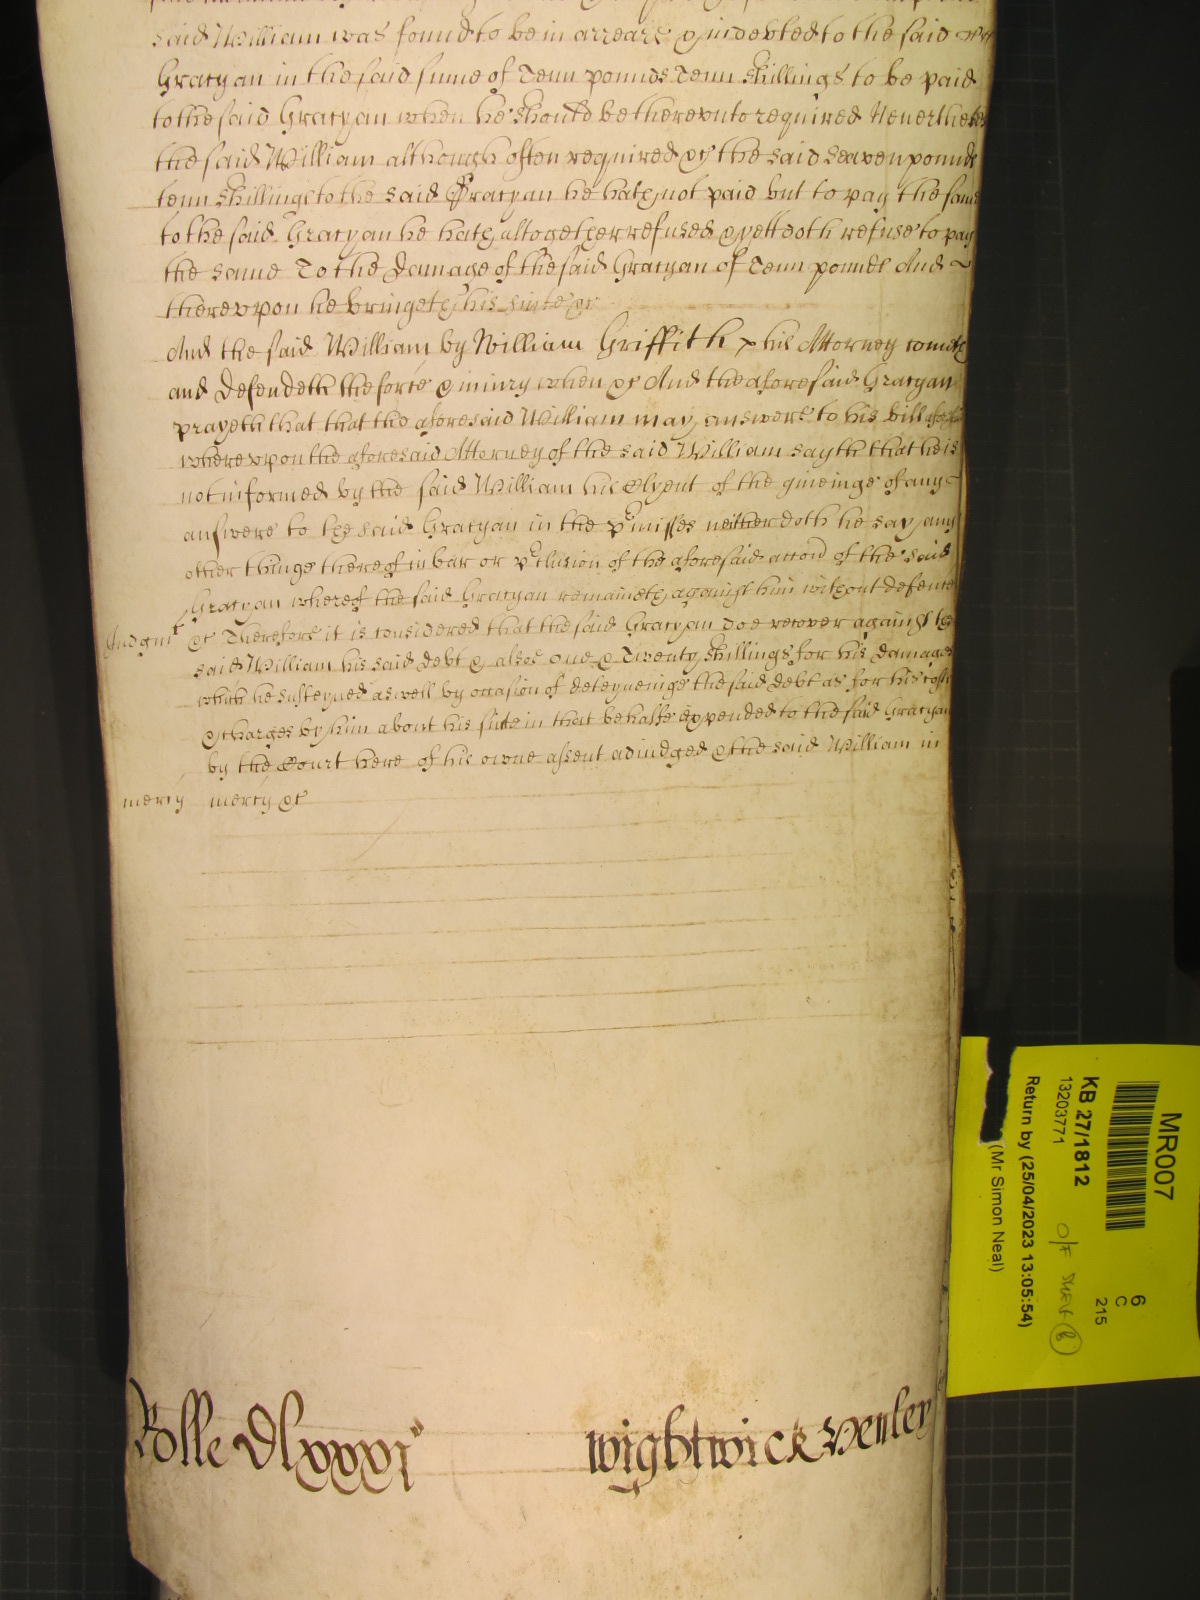 said William was found to be in arreare & indebted to the said
Gracyan in the said sume of Tenn pounds Tenn shillings to be paid
to the said Gracyan when he should be therevnto required Neuertheles
the said William although often required &c the said seaven pounds
tenn shillings to the said Gracyan he hath not paid but to pay the same
to the said Gracyan he hath altogether refused & yett doth refuse to pay
the same To the damage of the said Gracyan of Tenn pounds And
therevpon he bringeth his suite &c
And the said William by William Griffith his Attorney cometh
and defendeth the force & iniury when &c And the aforesaid Gracyan
prayeth that that the aforesaid William may answere to his bill
wherevpon the aforesaid Attorney of the said William sayth that he is
not informed by the said William his Clyent of the giueinge of any
answere to the said Gracyan in the p'misses neither doth he say any
other thinge thereof in bar or p'clusion of the aforesaid accon of the said
Gracyan whereof the said Gracyan remaineth against him without defence
Iudgmt &c Therefore it is considered that the said Gracyan doe recover against the
said William his said debt & alsoe one & Twenty shillings for his damages
which he susteyned aswell by occasion of deteyneinge the said debt as for his costs
& charges by him about his suite in that behalfe expended to the said Gracyan
by the Court here of his owne assent adiudged & the said William in
mercy mercy &c
Rolle Dlxxxi
wightwick Henley
MR007
KB 27/1812
13203771
Return by (25/04/2023 13:05:54)
(Mr Simon Neal)
6
C
215